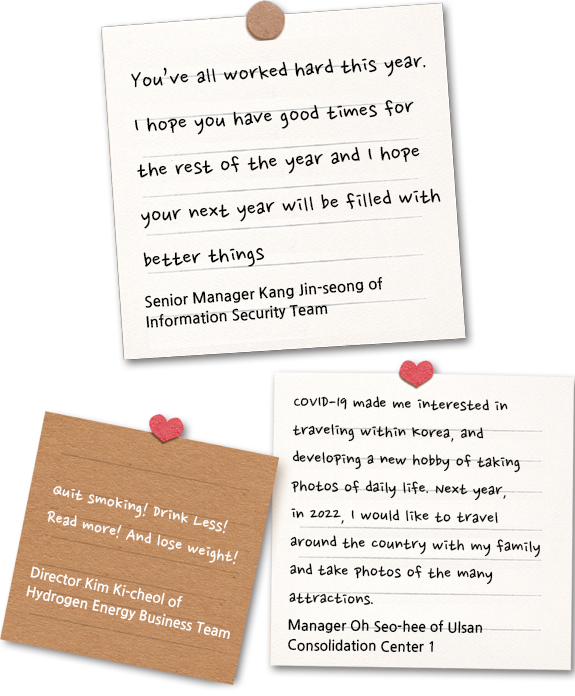 You've all worked hard this year.
I hope you have good times for
the rest of the year and I hope
your next year will be filled with
better things
Senior Manager Kang Jin-seong of
Information Security Team
Quit smoking! Drink Less!
Read more! And lose weight!
Director Kim Ki-cheol of
Hydrogen Energy Business Team
COVID-19 made me interested in
traveling within Korea, and
developing a new hobby of taking
photos of daily life. Next year,
in 2022, I would like to travel
around the country with my family
and take photos of the many
attractions.
Manager Oh Seo-hee of Ulsan
Consolidation Center 1